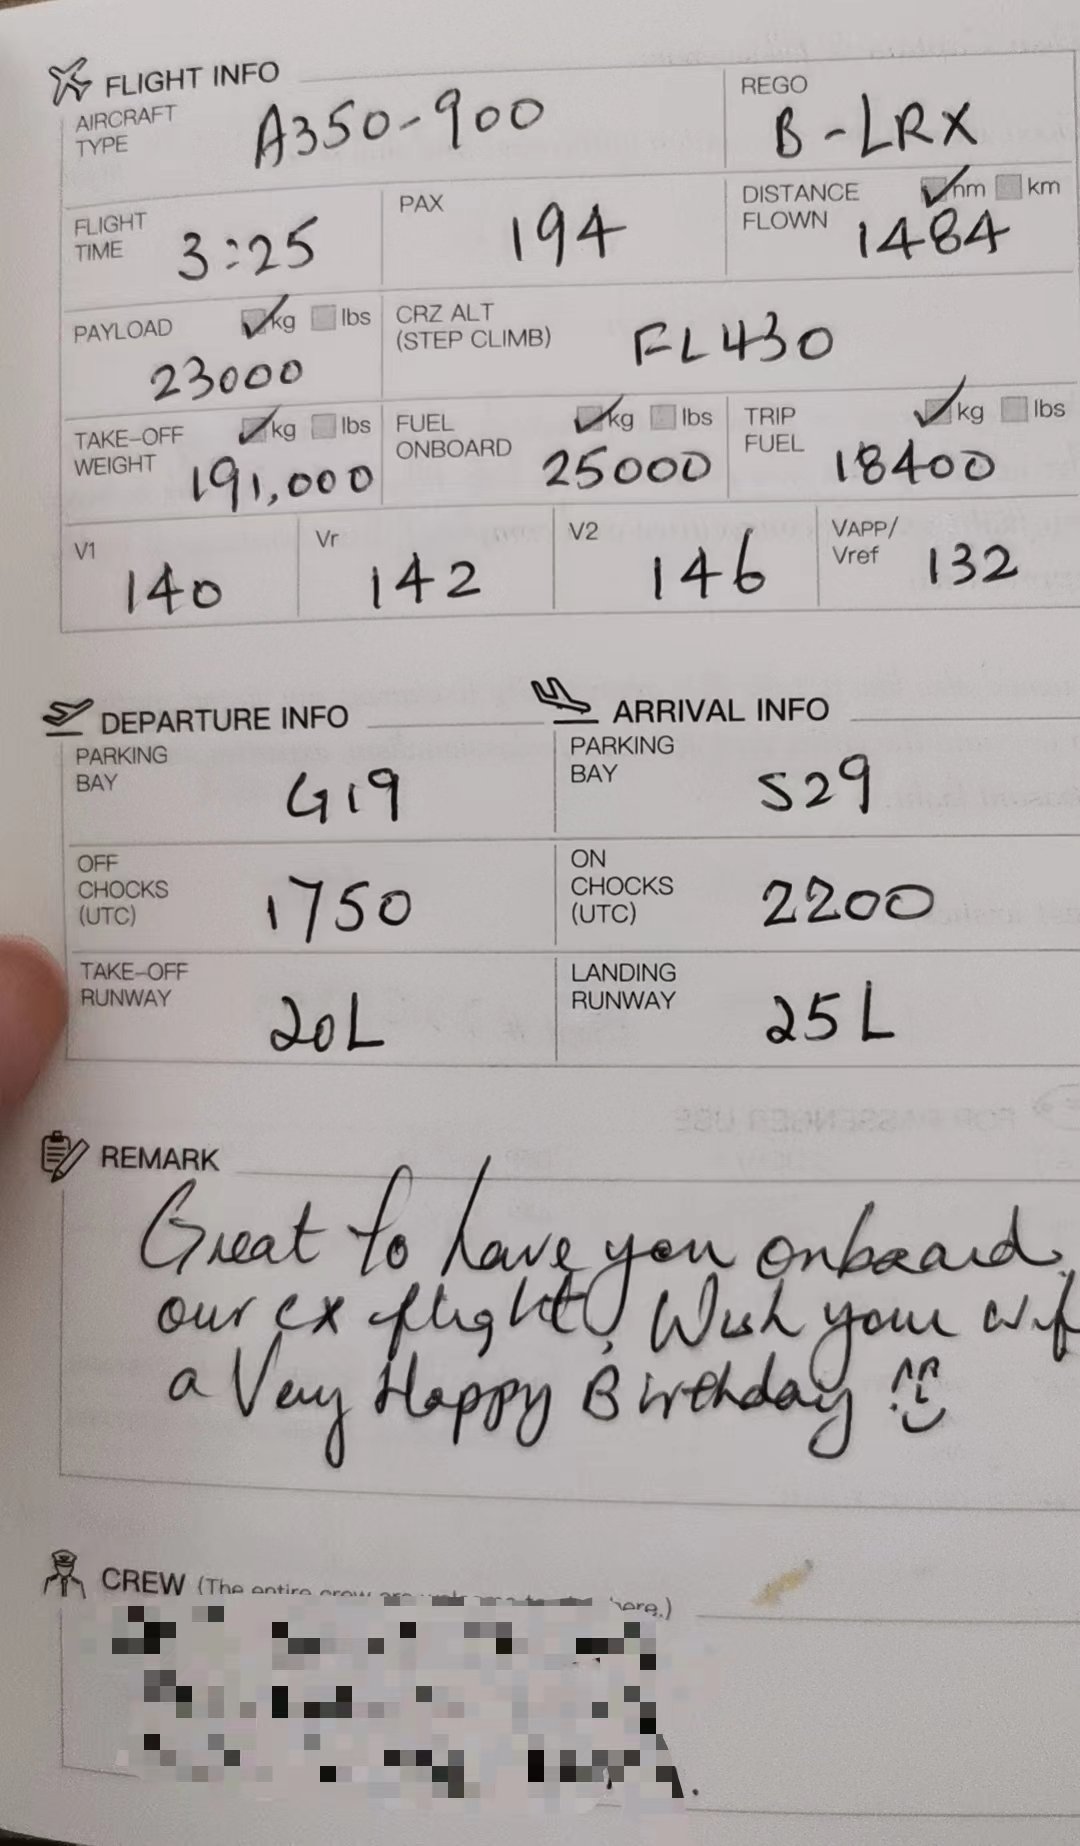 FLIGHT INFO
AIRCRAFT TYPE A350-900
REGO B-LRX
FLIGHT TIME 3:25
PAX 194
DISTANCE FLOWN nm km 1484
PAYLOAD kg lbs 23000
CRZ ALT (STEP CLIMB) FL430
TAKE-OFF WEIGHT kg lbs 191,000
FUEL ONBOARD kg lbs 25000
TRIP FUEL kg lbs 18400
V1 140
Vr 142
V2 146
VAPP/Vref 132
DEPARTURE INFO
PARKING BAY G19
OFF CHOCKS (UTC) 1750
TAKE-OFF RUNWAY 20L
ARRIVAL INFO
PARKING BAY S29
ON CHOCKS (UTC) 2200
LANDING RUNWAY 25L
REMARK
Great to have you onboard
our cx flight! Wish your wif
a Very Happy Birthday
CREW (The entire crew are here.)
FOR PASSENGER USE